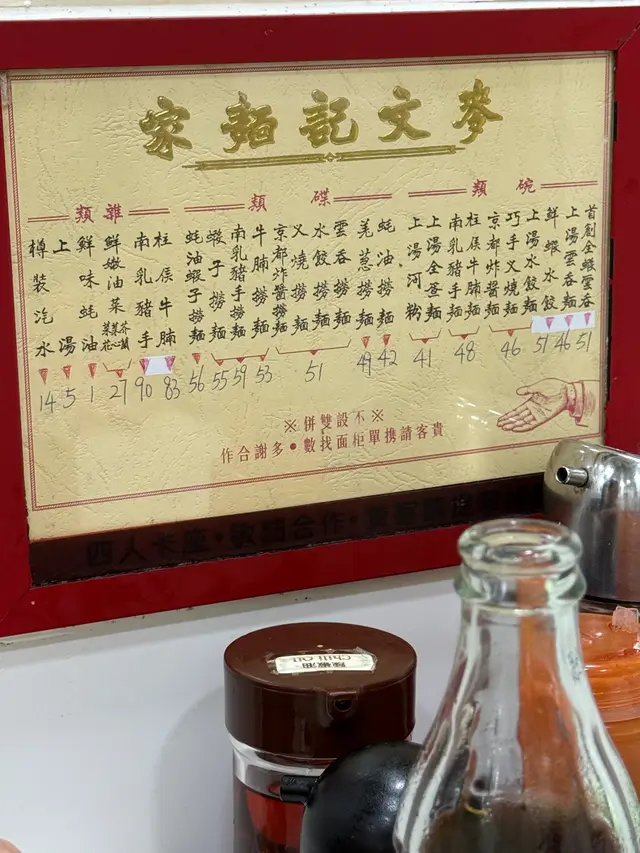 麥文記麵家
碗類
首創全蝦雲吞
51
上湯雲吞麵
46
鮮蝦水餃
51
上湯水餃麵
巧手叉燒麵
京都炸醬麵
46
柱侯牛腩麵
南乳豬手麵
48
上湯全蛋麵
上湯河粉
41
碟類
蚝油撈麵
42
羌葱撈麵
49
雲吞撈麵
水餃撈麵
叉燒撈麵
京都炸醬撈麵
51
牛腩撈麵
53
南乳豬手撈麵
59
蝦子撈麵
55
蚝油蝦子撈麵
56
雜類
柱侯牛腩
83
南乳豬手
90
鮮嫩油菜 芥蘭 菜心 菜花
27
鮮味蚝油
1
上湯
5
樽裝汽水
14
※不設雙併※
貴客請携單柜面找數●多謝合作
四人卡座•敬請合作•
辣椒油
Chili Oil